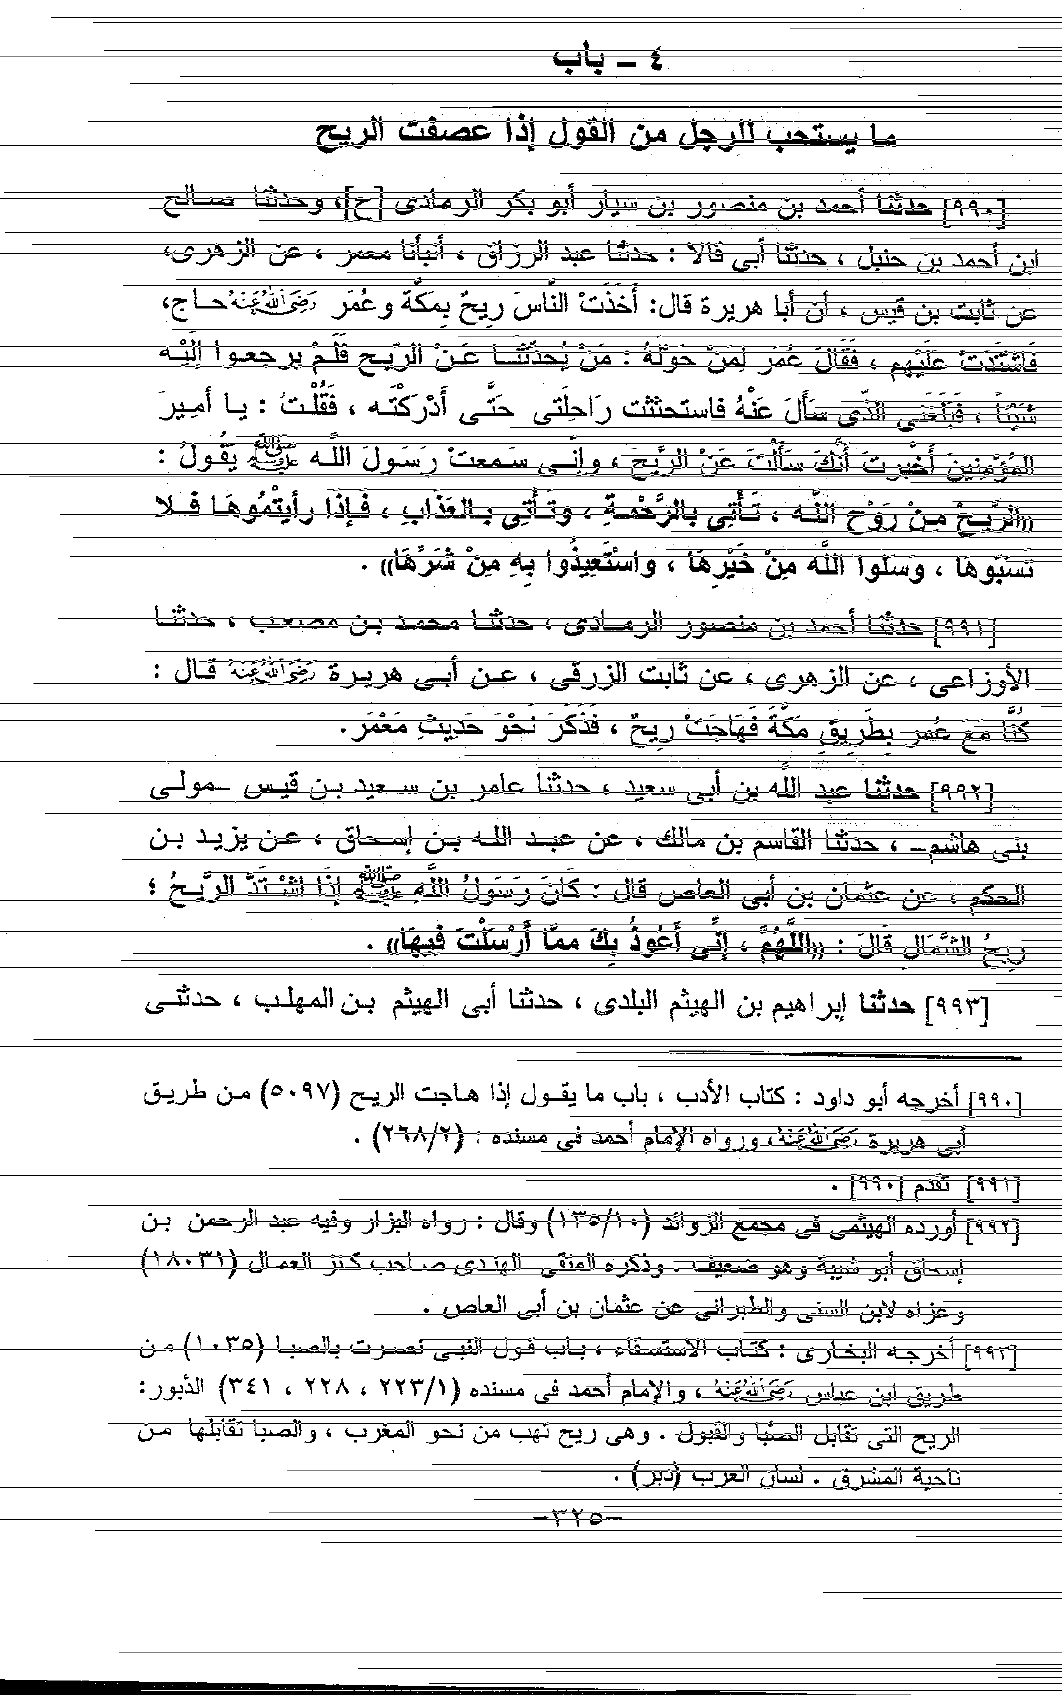 ٤ - باب
ما يستحب للرجل من القول إذا عصفت الريح
[٩٩٠] حدثنا أحمد بن منصور بن سيار أبو بكر الرمادى [ح]، وحدثنا صالح
ابن أحمد بن حنبل ، حدثنا أبى قالا : حدثنا عبد الرزاق ، أنبأنا معمر ، عن الزهرى،
عن ثابت بن قيس ، أن أبا هريرة قال: أَخَذَتْ النَّاسَ رِيحٌ بِمَكَّةَ وعُمَر رَضِيَ اللهُ عَنْهُ حاج،
فَاشْتَدَّتْ عَلَيْهِم ، فَقَالَ عُمَر لِمَنْ حَوْلَهُ : مَنْ يُحَدِّثْنَا عَنْ الرِّيحِ فَلَمْ يرجعوا إِلَيْه
شَيْئاً ، فَبَلَغَنِى الَّذِى سَأَلَ عَنْهُ فاستحثثت رَاحِلَتِى حَتَّى أَدْرَكْتَه ، فَقُلْتُ : يا أمِيرَ
المُؤْمِنِينَ أُخْبِرتَ أَنَّكَ سَأَلْتَ عَنْ الرِّيْحِ ، وإنِّى سَمعتْ رَسُولَ اللَّه ﷺ يَقُولُ :
«الرِّيَحُ مِنْ رَوْحِ اللَّه ، تَأْتِى بالرَّحْمةِ ، وتَأْتِى بالعَذَابِ ، فَإذَا رأيتْمُوهَا فَلا
تَسُبُّوهَا ، وسَلوا اللَّه مِنْ خَيْرِهَا ، واسْتَعِيذُوا بِهِ مِنْ شَرِّهَا» .
[٩٩١] حدثنا أحمد بن منصور الرمادى ، حدثنا محمد بن مصعب ، حدثنا
الأوزاعى ، عن الزهرى ، عن ثابت الزرقى ، عن أبى هريرة رَضِيَ اللهُ عَنْهُ قال :
كُنَّا مَعَ عُمر بِطَرِيقِ مَكَّةَ فَهَاجَتْ رِيحٌ ، فَذَكَرَ نَحْوَ حَدِيثِ مَعْمَر.
[٩٩٢] حدثنا عبد الله بن أبى سعيد ، حدثنا عامر بن سعيد بن قيس -مولى
بنى هاشم- ، حدثنا القاسم بن مالك ، عن عبد الله بن إسحاق ، عن يزيد بن
الحكم ، عن عثمان بن أبى العاص قال : كَانَ رَسُولُ اللَّهِ ﷺ إِذَا اشْتَدَّ الرِّيحُ ؛
رِيحُ الشَّمَالِ قَالَ : «اللَّهُمَّ ، إِنِّى أَعُوذُ بِكَ ممَّا أَرْسَلْتَ فِيهَا» .
[٩٩٣] حدثنا إبراهيم بن الهيثم البلدى ، حدثنا أبى الهيثم بن المهلب ، حدثنى
[٩٩٠] أخرجه أبو داود : كتاب الأدب ، باب ما يقول إذا هاجت الريح (٥٠٩٧) من طريق
أبى هريرة رَضِيَ اللهُ عَنْهُ، ورواه الإمام أحمد فى مسنده : (٢٦٨/٢) .
[٩٩١] تقدم [٩٩٠] .
[٩٩٢] أورده الهيثمى فى مجمع الزوائد (١٣٥/١٠) وقال : رواه البزار وفيه عبد الرحمن بن
إسحاق أبو شيبة وهو ضعيف . وذكره المتقى الهندى صاحب كنز العمال (١٨٠٣١)
وعزاه لابن السنى والطبرانى عن عثمان بن أبى العاص .
[٩٩٣] أخرجه البخارى : كتاب الاستسقاء ، باب قول النبى نصرت بالصبا (١٠٣٥) من
طريق ابن عباس رَضِيَ اللهُ عَنْهُ ، والإمام أحمد فى مسنده (٢٢٣/١ ، ٢٢٨ ، ٣٤١) الدَّبور:
الريح التى تقابل الصَّبا والقبول . وهى ريح تهب من نحو المغرب ، والصبا تقابلها من
ناحية المشرق . لسان العرب (دبر) .
-٣٢٥-